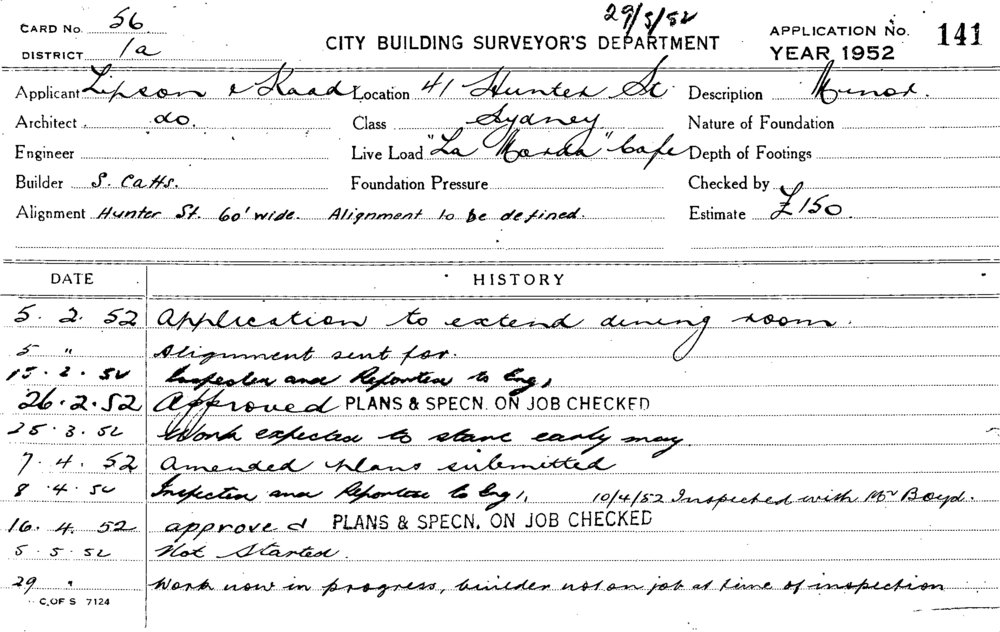 29/5/52
CARD No. 56
DISTRICT 1a
CITY BUILDING SURVEYOR'S DEPARTMENT
APPLICATION No. 141
YEAR 1952
Applicant Lipson & Kaad Location 41 Hunter St Description Minor.
Architect do. Class Sydney Nature of Foundation
Engineer Live Load "La " Cafe Depth of Footings
Builder S. Catts. Foundation Pressure Checked by
Alignment Hunter St. 60' wide. Alignment to be defined. Estimate £150
DATE HISTORY
5. 2. 52 Application to extend dining room.
5 " Alignment sent for.
15. 2. 52 Inspected and Reported to Eng,
26. 2. 52 Approved PLANS & SPECN. ON JOB CHECKED
25. 3. 52 Work expected to start early may.
7. 4. 52 Amended plans submitted
8. 4. 52 Inspected and Reported to Eng, 10/4/52 Inspected with Mr Boyd.
16. 4. 52 approved PLANS & SPECN. ON JOB CHECKED
5. 5. 52 Not Started.
29 " Work now in progress, builder not on job at time of inspection
C. OF S 7124